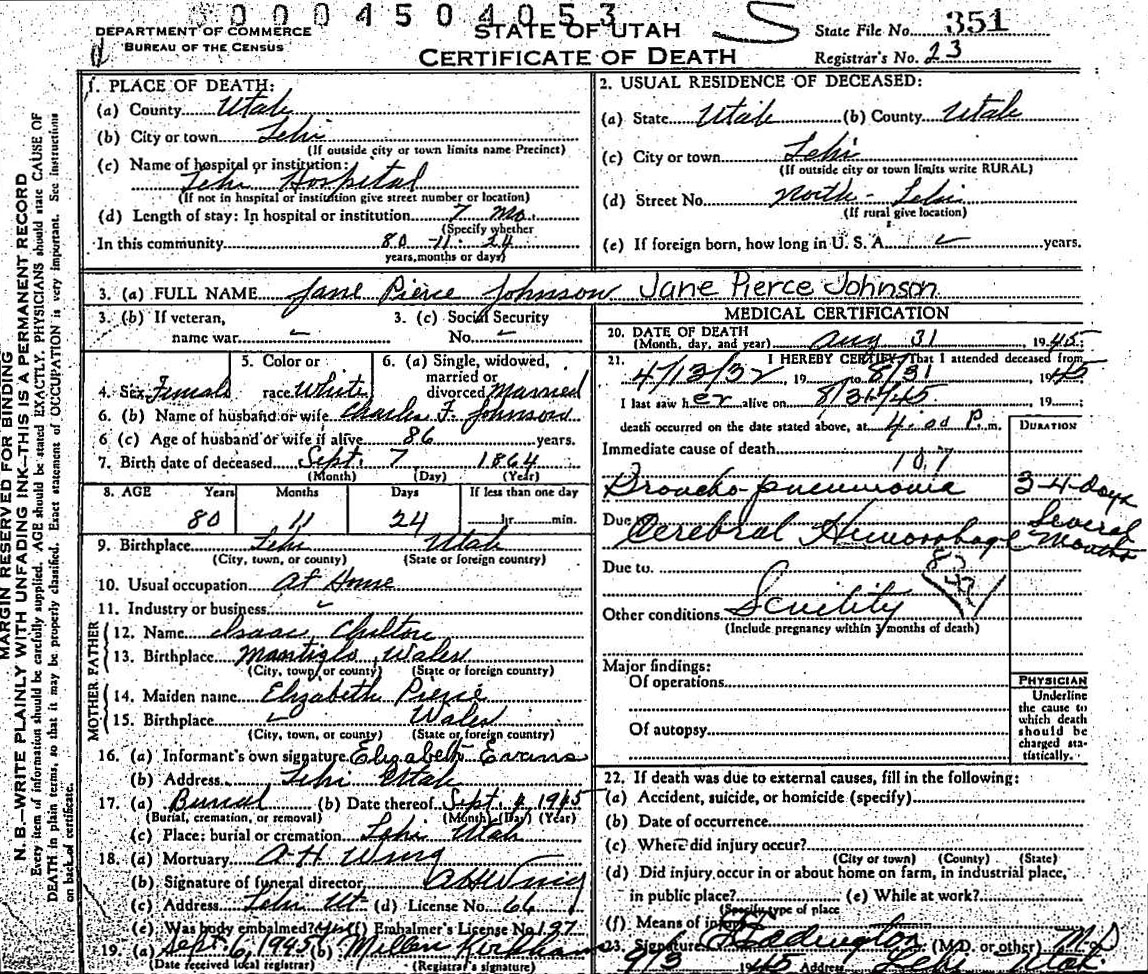 0 0 0 4 5 0 4 0 5 3
DEPARTMENT OF COMMERCE
BUREAU OF THE CENSUS
STATE OF UTAH
CERTIFICATE OF DEATH
S
State File No. 351
Registrar's No. 23
1. PLACE OF DEATH:
(a) County Utah
(b) City or town Lehi
(If outside city or town limits name Precinct)
(c) Name of hospital or institution:
Lehi Hospital
(If not in hospital or institution give street number or location)
(d) Length of stay: In hospital or institution 7 mo.
(Specify whether
In this community 80 - 11 - 24
years, months or days)
2. USUAL RESIDENCE OF DECEASED:
(a) State Utah (b) County Utah
(c) City or town Lehi
(If outside city or town limits write RURAL)
(d) Street No. North - Lehi
(If rural give location)
(e) If foreign born, how long in U. S. A. years.
3. (a) FULL NAME Jane Pierce Johnson Jane Pierce Johnson
3. (b) If veteran,
name war -
3. (c) Social Security
No. -
4. Sex Female
5. Color or
race White
6. (a) Single, widowed,
married or
divorced Married
6. (b) Name of husband or wife Charles F. Johnson
6 (c) Age of husband or wife if alive 86 years.
7. Birth date of deceased Sept. 7 1864
(Month) (Day) (Year)
8. AGE Years Months Days If less than one day
80 11 24 hr. min.
9. Birthplace Lehi Utah
(City, town, or county) (State or foreign country)
10. Usual occupation At Home
11. Industry or business
FATHER
12. Name Isaac Chilton
13. Birthplace Wales
(City, town, or county) (State or foreign country)
MOTHER
14. Maiden name Elizabeth Pierce
15. Birthplace Wales
(City, town, or county) (State or foreign country)
16. (a) Informant's own signature Elizabeth Evans
(b) Address Lehi Utah
17. (a) Burial (b) Date thereof Sept. 4, 1945
(Burial, cremation, or removal) (Month) (Day) (Year)
(c) Place: burial or cremation Lehi Utah
18. (a) Mortuary A H Wing
(b) Signature of funeral director A H Wing
(c) Address Lehi Ut (d) License No. 66
(e) Was body embalmed? yes (f) Embalmer's License No. 137
19. (a) Sept. 6, 1945 (b) Millen Kirkham
(Date received local registrar) (Registrar's signature)
MEDICAL CERTIFICATION
20. DATE OF DEATH
(Month, day, and year) Aug 31 1945;
21. I HEREBY CERTIFY, That I attended deceased from
4/13/32, 19 to 8/31 1945
I last saw her alive on 8/31/45 19 ;
death occurred on the date stated above, at 4.00 P. m.
DURATION
Immediate cause of death
107
Broncho pneumonia 3-4-days
Due to Cerebral Hemorrhage Several Months
Due to
Other conditions Senility
(Include pregnancy within 3 months of death)
Major findings:
Of operations
Of autopsy
PHYSICIAN
Underline
the cause to
which death
should be
charged sta-
tistically.
22. If death was due to external causes, fill in the following:
(a) Accident, suicide, or homicide (specify)
(b) Date of occurrence
(c) Where did injury occur?
(City or town) (County) (State)
(d) Did injury occur in or about home on farm, in industrial place,
in public place? (e) While at work?
(Specify type of place
(f) Means of injury
23. Signature Eddington (M.D. or other) M.D
9/3 1945 Address Lehi Utah.
MARGIN RESERVED FOR BINDING
N. B.—WRITE PLAINLY WITH UNFADING INK—THIS IS A PERMANENT RECORD
Every item of information should be carefully supplied. AGE should be stated EXACTLY. PHYSICIANS should state CAUSE OF
DEATH in plain terms, so that it may be properly classified. Exact statement of OCCUPATION is very important. See instructions
on back of certificate.